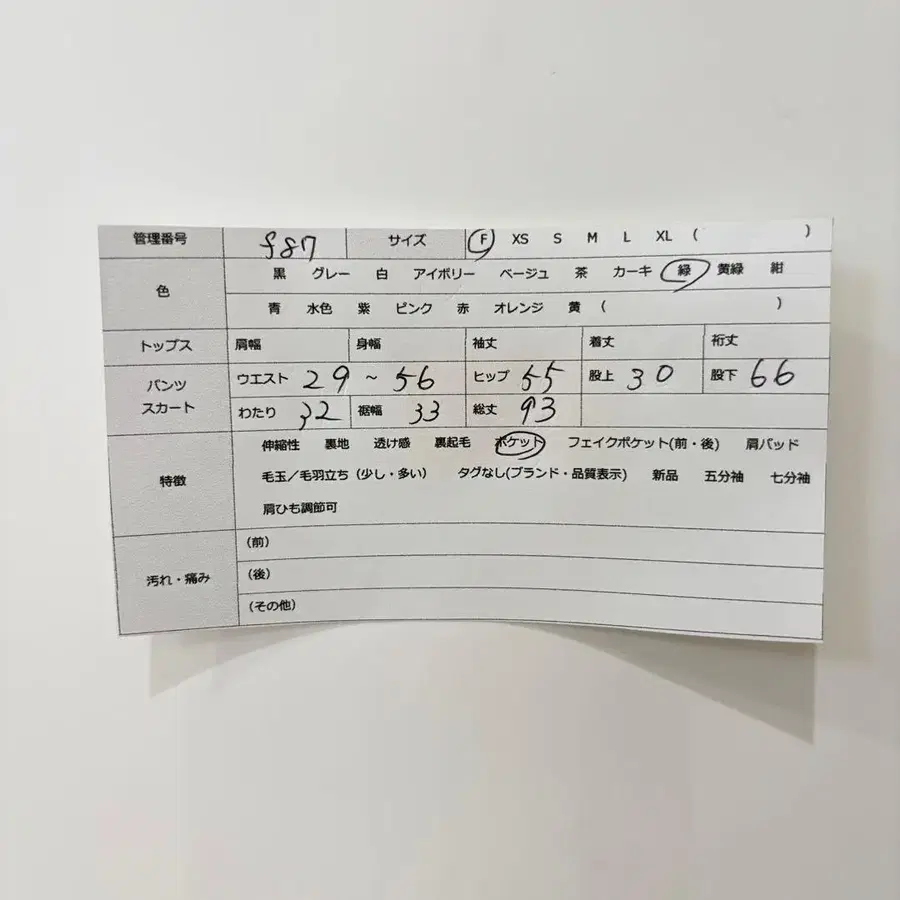 管理番号 f87 サイズ F XS S M L XL ( )
色 黒 グレー 白 アイボリー ベージュ 茶 カーキ 緑 黄緑 紺
青 水色 紫 ピンク 赤 オレンジ 黄 ( )
トップス 肩幅 身幅 袖丈 着丈 裄丈
パンツ スカート ウエスト 29 ~ 56 ヒップ 55 股上 30 股下 66
わたり 32 裾幅 33 総丈 93
特徴 伸縮性 裏地 透け感 裏起毛 ポケット フェイクポケット(前・後) 肩パッド
毛玉/毛羽立ち (少し・多い) タグなし(ブランド・品質表示) 新品 五分袖 七分袖
肩ひも調節可
汚れ・痛み (前)
(後)
(その他)